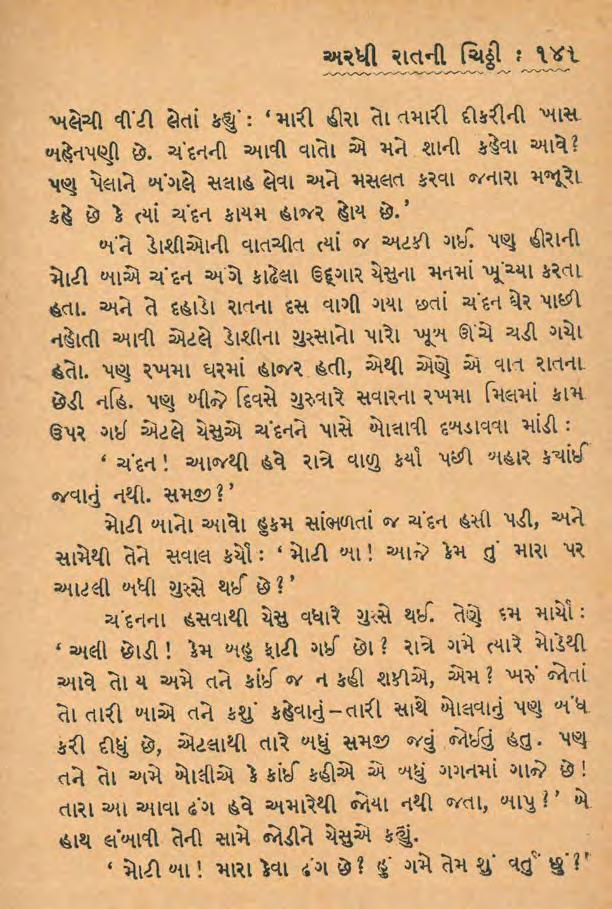 અરધી રાતની ચિઠ્ઠી : ૧૪૧
ખલેચી વીંટી લેતાં કહ્યું : ‘મારી હીરા તો તમારી દીકરીની ખાસ
બહેનપણી છે. ચંદનની આવી વાતો એ મને શાની કહેવા આવે?
પણ પેલાને બંગલે સલાહ લેવા અને મસલત કરવા જનારા મજૂરો
કહે છે કે ત્યાં ચંદન કાયમ હાજર હોય છે.’
બંને ડોશીઓની વાતચીત ત્યાં જ અટકી ગઈ. પણ હીરાની
મોટી બાએ ચંદન અંગે કાઢેલા ઉદ્‌ગાર યેસુના મનમાં ખૂંચ્યા કરતા
હતા. અને તે દહાડો રાતના દસ વાગી ગયા છતાં ચંદન ઘેર પાછી
નહોતી આવી એટલે ડોશીના ગુસ્સાનો પારો ખૂબ ઊંચે ચડી ગયો
હતો. પણ રખમા ઘરમાં હાજર હતી, એથી એણે એ વાત રાતના
છેડી નહિ. પણ બીજે દિવસે ગુરુવારે સવારના રખમા મિલમાં કામ
ઉપર ગઈ એટલે યેસુએ ચંદનને પાસે બોલાવી દબડાવવા માંડી :
‘ ચંદન ! આજથી હવે રાત્રે વાળુ કર્યા પછી બહાર કયાંઈ
જવાનું નથી. સમજી?’
મોટી બાનો આવો હુકમ સાંભળતાં જ ચંદન હસી પડી, અને
સામેથી તેને સવાલ કર્યો : ‘ મોટી બા ! આજે કેમ તું મારા પર
આટલી બધી ગુસ્સે થઈ છે ?’
ચંદનના હસવાથી યેસુ વધારે ગુસ્સે થઈ. તેણે દમ માર્યો :
‘ અલી છોડી ! કેમ બહુ ફાટી ગઈ છો ? રાત્રે ગમે ત્યારે મોડેથી
આવે તો ય અમે તને કાંઈ જ ન કહી શકીએ, એમ ? ખરું જોતાં
તો તારી બાએ તને કશું કહેવાનું–તારી સાથે બોલવાનું પણ બંધ
કરી દીધું છે, એટલાથી તારે બધું સમજી જવું જોઈતું હતું. પણ
તને તો અમે બોલીએ કે કાંઈ કહીએ એ બધું ગગનમાં ગાજે છે !
તારા આ આવા ઢંગ હવે અમારેથી જોયા નથી જતા, બાપુ ?’ બે
હાથ લંબાવી તેની સામે જોડીને યેસુએ કહ્યું.
‘ મોટી બા ! મારા કેવા ઢંગ છે ? હું ગમે તેમ શું વર્તું છું ?’